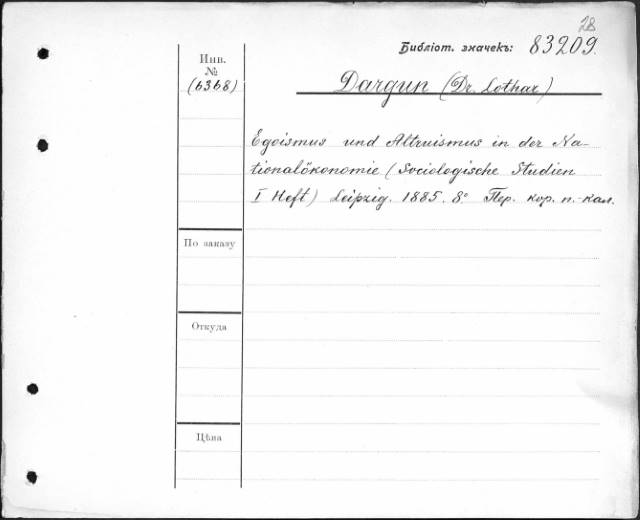 28
Библіот. значекъ: 83209.
Инв.
№
(6368)
Dargun (Dr. Lothar)
Egoismus und Altruismus in der Na-
tionalökonomie (Sociologische Studien
I Heft) Leipzig. 1885. 8° Пер. кор. п.-кал.
По заказу
Откуда
Цѣна